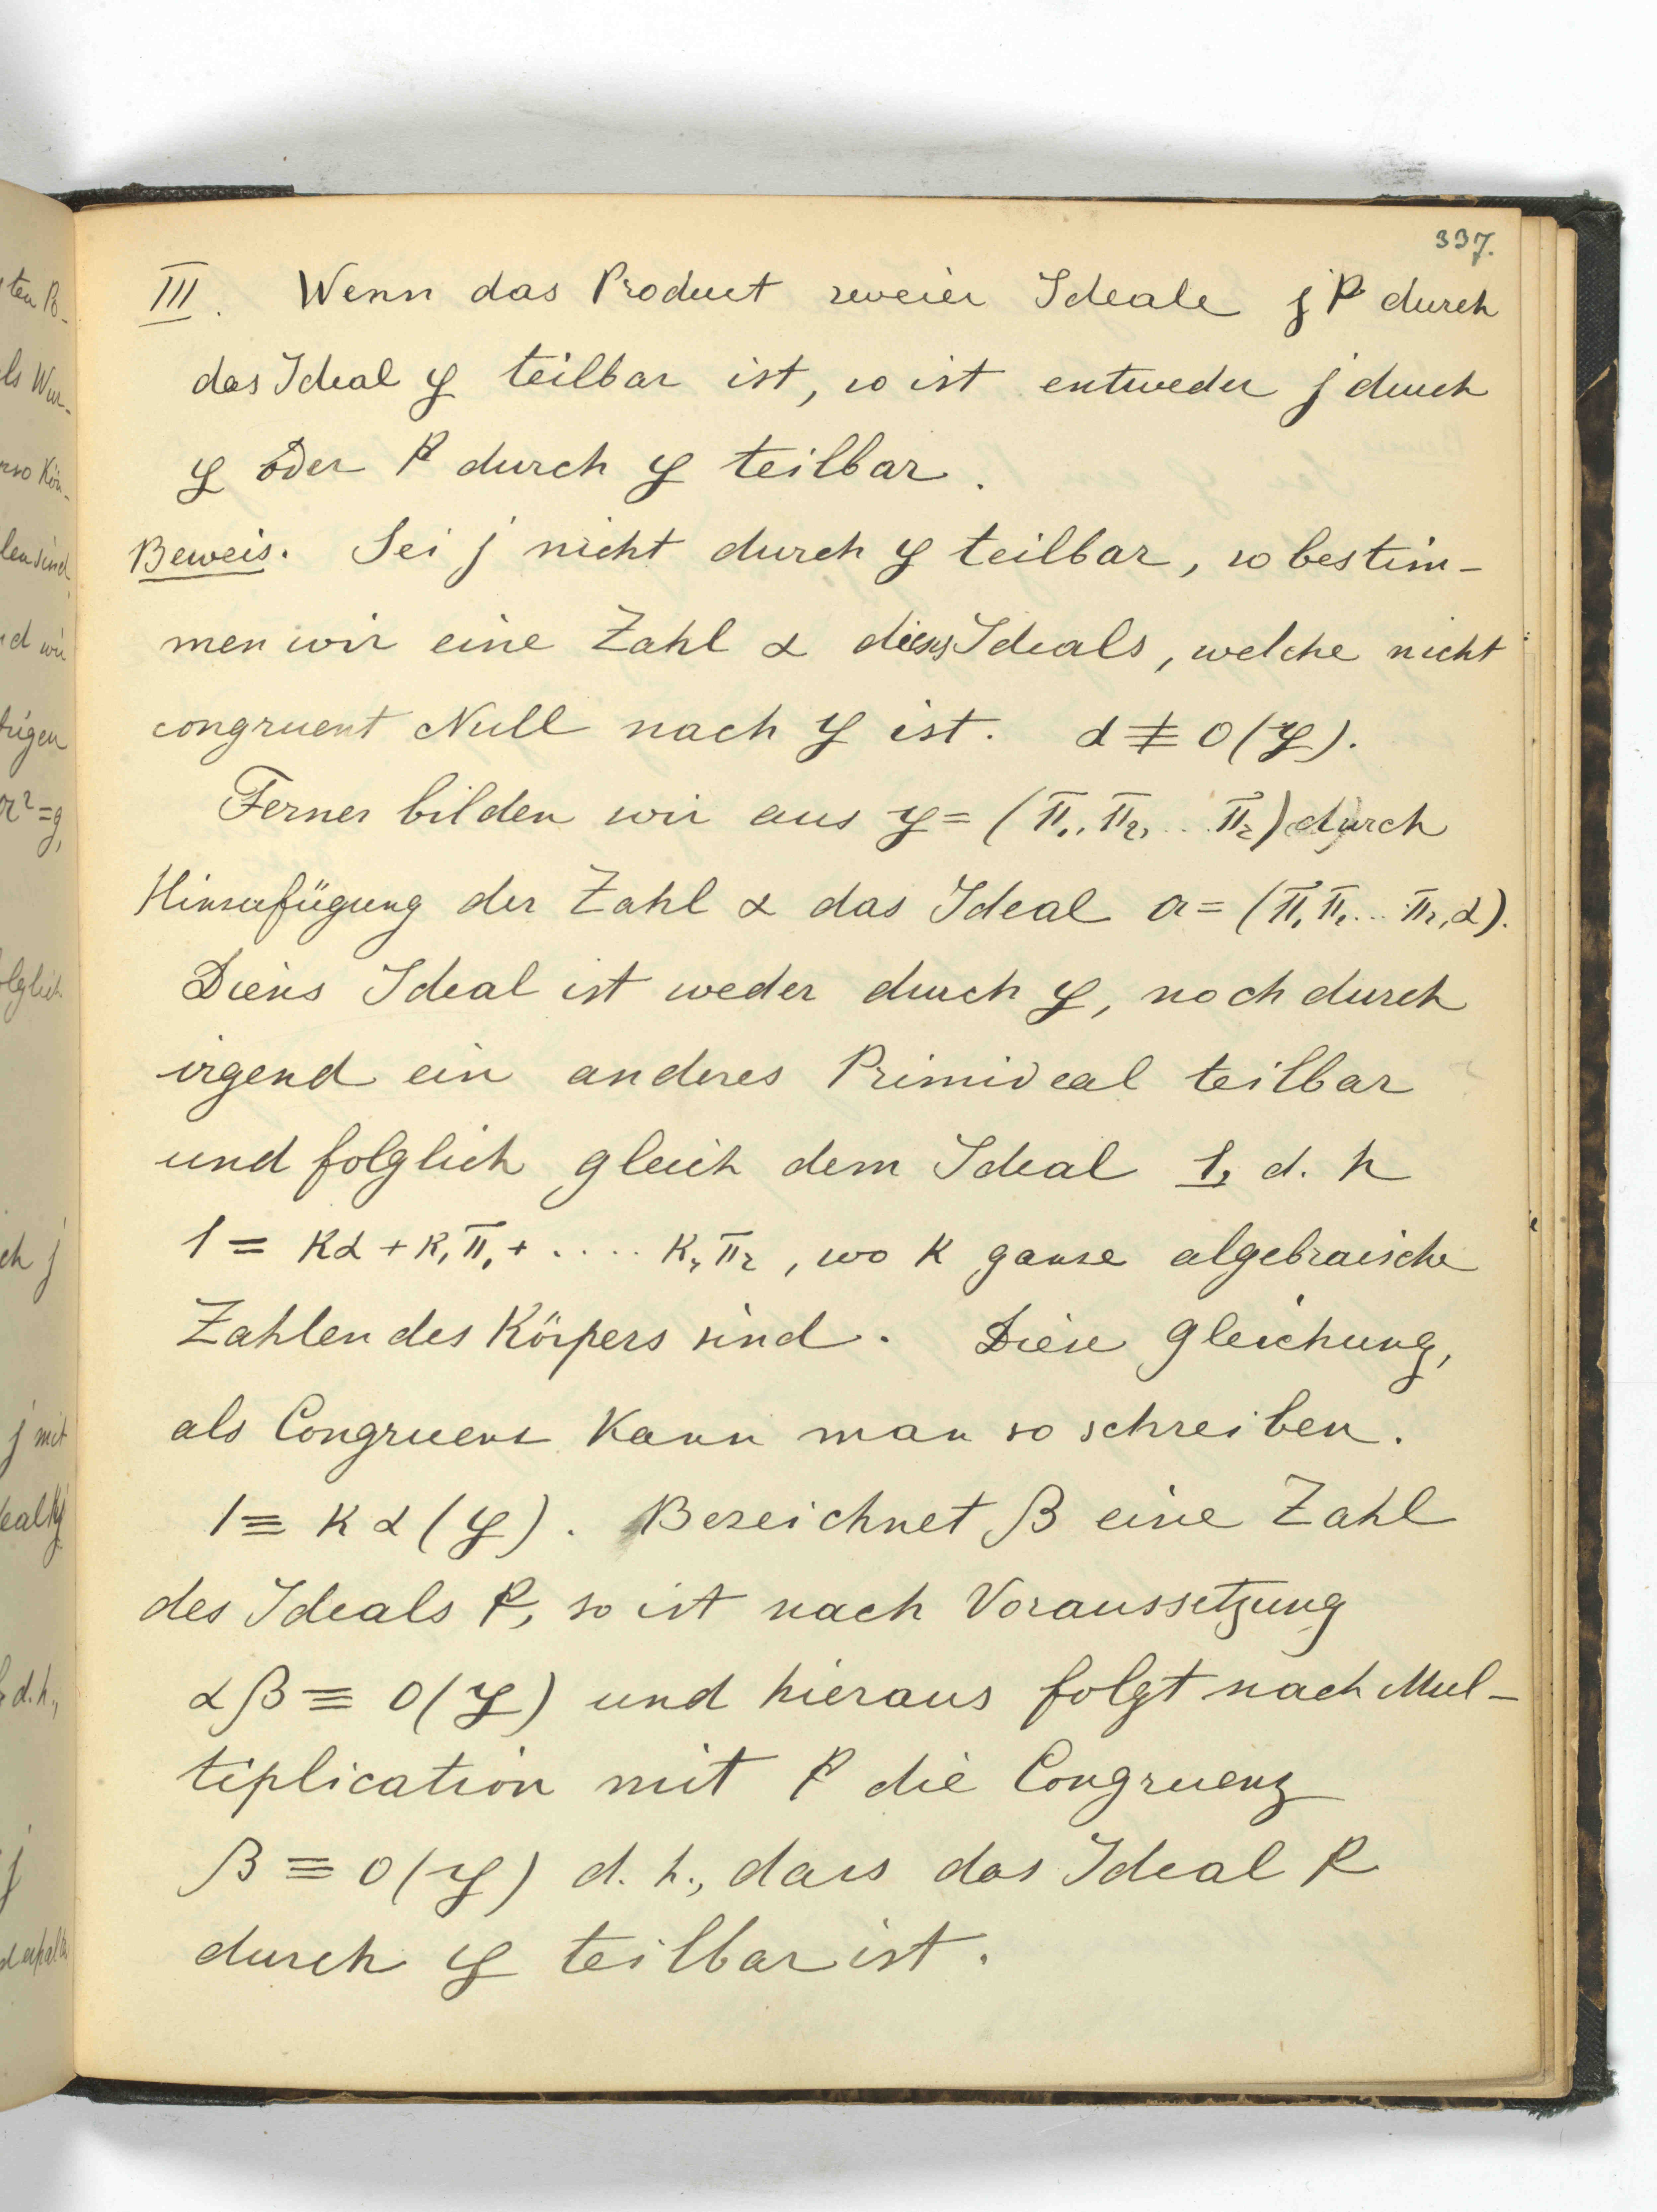 337.
III. Wenn das Product zweier Ideale j k durch
das Ideal 𝔭 teilbar ist, so ist entweder j durch
𝔭 oder k durch 𝔭 teilbar.
Beweis. Sei j nicht durch 𝔭 teilbar, so bestim-
men wir eine Zahl α dieses Ideals, welche nicht
congruent Null nach 𝔭 ist. α ≢ 0 (𝔭).
Ferner bilden wir aus 𝔭 = (π₁, π₂, .. πᵣ) durch
Hinzufügung der Zahl α das Ideal 𝔞 = (π₁ π₂ ... πᵣ, α).
Dieses Ideal ist weder durch 𝔭, noch durch
irgend ein anderes Primideal teilbar
und folglich gleich dem Ideal 1, d. h
1 = κα + κ₁π₁ + ..... κᵣπᵣ, wo κ ganze algebraische
Zahlen des Körpers sind. Diese Gleichung,
als Congruenz kann man so schreiben.
1 ≡ κα (𝔭). Bezeichnet β eine Zahl
des Ideals k, so ist nach Voraussetzung
αβ ≡ 0 (𝔭) und hieraus folgt nach Mul-
tiplication mit k die Congruenz
β ≡ 0 (𝔭) d. h., dass das Ideal k
durch 𝔭 teilbar ist.